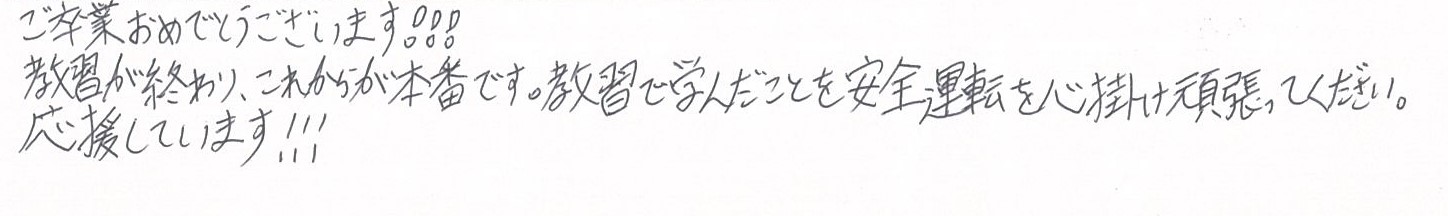 ご卒業おめでとうございます!!!
教習が終わり、これからが本番です。教習で学んだことを安全運転を心掛け頑張ってください。
応援しています!!!